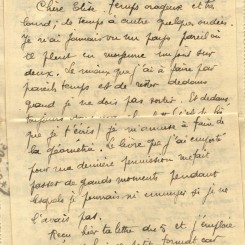 Chère Elise, Temps orageux et très
lourd, de temps à autre quelques ondées.
Je n'ai jamais vu un pays pareil où
il pleut en moyenne un jour sur
deux. Le mieux que j'ai à faire par
pareils temps est de rester dedans
quand je ne dois pas sortir. Et dedans,
toujours
que je t'écris, je m'amuse à faire de
la géométrie. Le livre que j'ai emporté
pour ma dernière permission me fait
passer de grands moments pendant
lesquels je pourrais m'ennuyer si je ne
l'avais pas.
Reçu hier ta lettre du 5 et j'emploie
petit format car